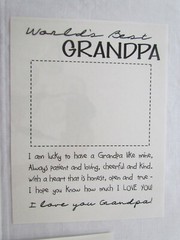 World's Best
GRANDPA
I am lucky to have a Grandpa like mine,
Always patient and loving, cheerful and kind,
with a heart that is honest, open and true -
I hope you know how much I LOVE YOU!
I love you Grandpa!